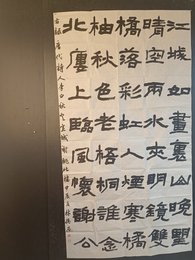 江城如畫裏山晚朢
晴空兩水夾明鏡雙
橋落彩虹人煙寒橘
柚秋色老梧桐誰念
北樓上臨風懷謝公
唐代詩人李白秋登宣城謝朓北樓